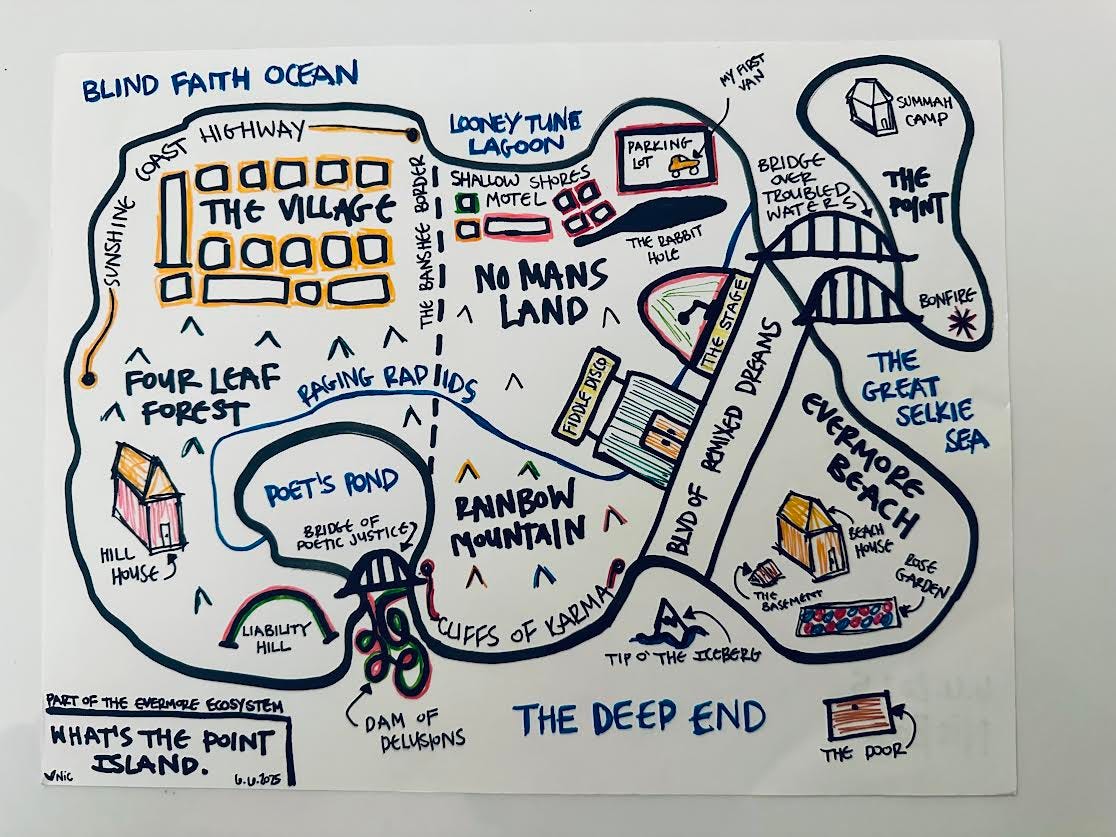 BLIND FAITH OCEAN
COAST HIGHWAY
SUNSHINE
THE VILLAGE
THE BANSHEE BORDER
LOONEY TUNE
LAGOON
SHALLOW SHORES
MOTEL
MY FIRST
VAN
PARKING
LOT
THE RABBIT
HOLE
NO MANS
LAND
BRIDGE
OVER
TROUBLED
WATERS
SUMMAH
CAMP
THE
POINT
BONFIRE
THE
GREAT
SELKIE
SEA
THE STAGE
FIDDLE DISCO
BLVD OF REMIXED DREAMS
FOUR LEAF
FOREST
RAGING RAPIDS
POET'S POND
BRIDGE OF
POETIC JUSTICE
RAINBOW
MOUNTAIN
HILL
HOUSE
LIABILITY
HILL
CLIFFS OF KARMA
EVERMORE
BEACH
BEACH
HOUSE
THE
BASEMENT
ROSE
GARDEN
TIP O' THE ICEBERG
DAM OF
DELUSIONS
THE DEEP END
THE DOOR
PART OF THE EVERMORE ECOSYSTEM
WHAT'S THE POINT
ISLAND.
NIC